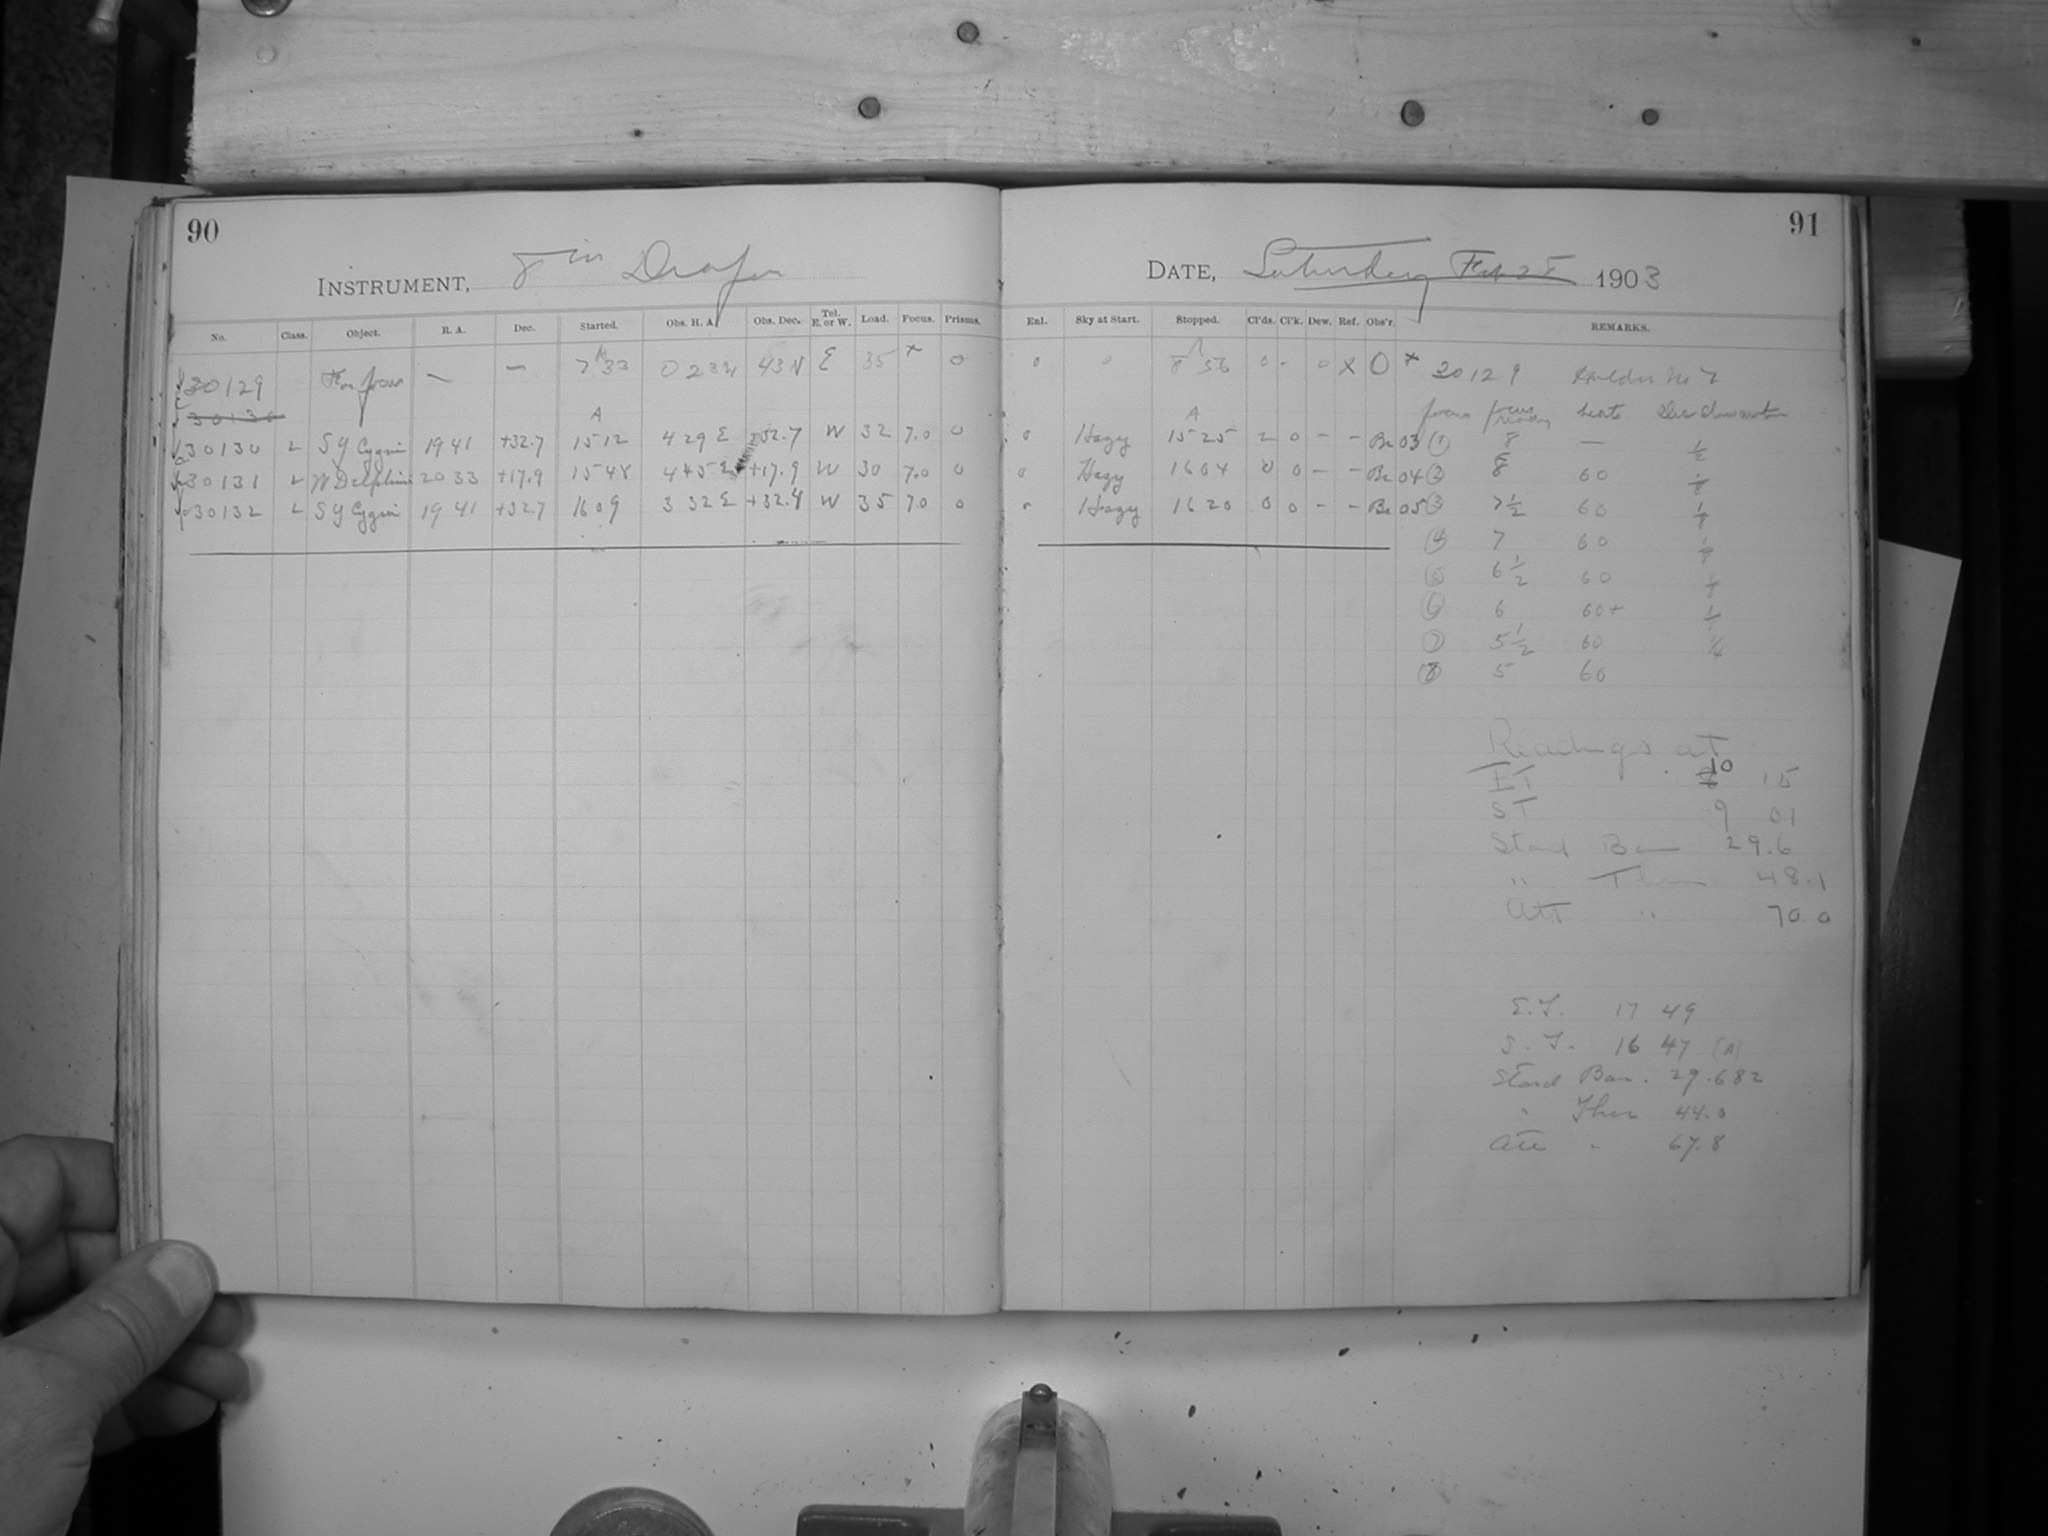 90
INSTRUMENT, 8 in Draper
No. Class. Object. R. A. Dec. Started. Obs. H. A. Obs. Dec. Tel. E. or W. Load. Focus. Prisms.
30129 For focus — — 7 33 0 23 W 43 N E 35 x 0
30130
A
30130 L SY Cygni 19 41 +32.7 15 12 4 29 E +32.7 W 32 7.0 0
30131 L W Delphini 20 33 +17.9 15 48 4 45 E +17.9 W 30 7.0 0
30132 L SY Cygni 19 41 +32.7 16 09 3 32 E +32.4 W 35 7.0 0
91
DATE, Saturday Feb 28 1903
Enl. Sky at Start. Stopped. Cl'ds. Cl'k. Dew. Ref. Obs'r. REMARKS.
0 0 8 56 0 - 0 X O x 30129 Holder No 7
focus focus beats
A
0 Hazy 15 25 2 0 – – Be 03 (1) 8 — 1/2
0 Hazy 16 04 0 0 – – Be 04 (2) 8 60 1/8
0 Hazy 16 20 0 0 – – Be 05 (3) 7 1/2 60 1/8
(4) 7 60
6 1/2 60
(6) 6 60+
(7) 5 1/2 60 1/4
(8) 5 60
Readings at
ET 10 15
ST 9 01
Stand Bar 29.6
" Ther 48.1
Att " 70.0
E.T. 17 49
S.T. 16 47 (A)
Stand Bar. 29.682
" Ther 44.0
Att " 67.8